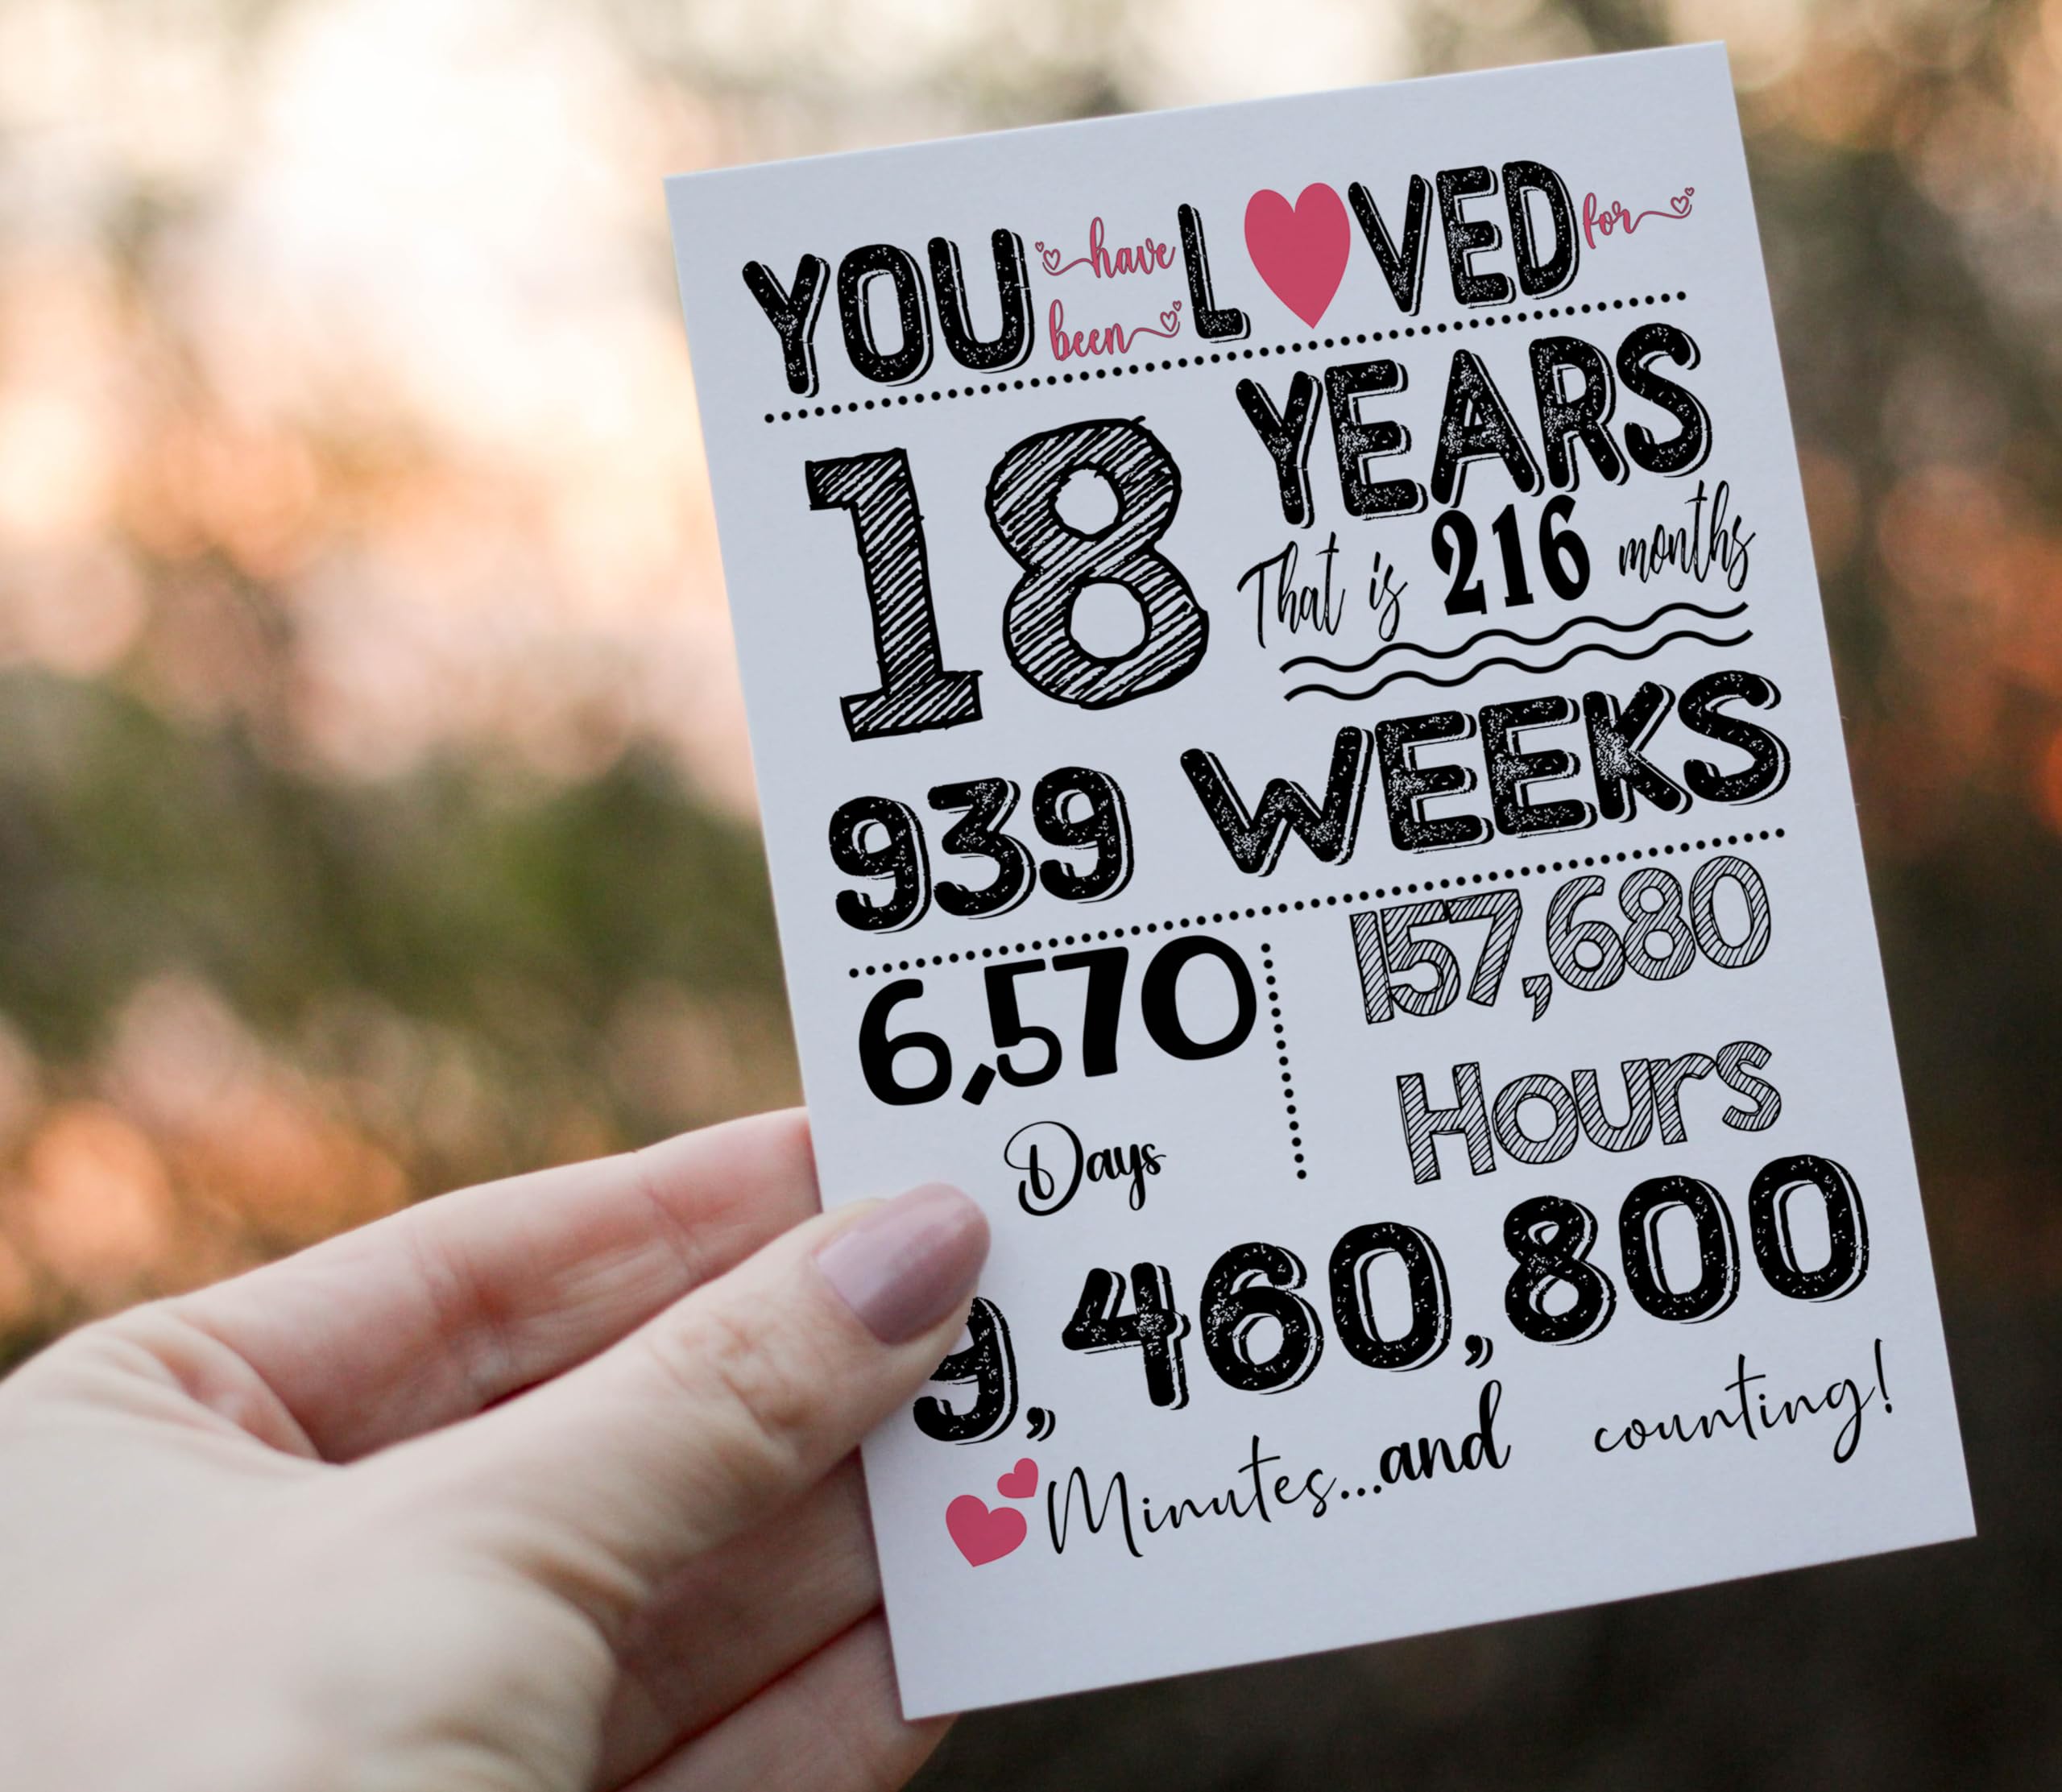 YOU have been LOVED for
18 YEARS
That is 216 months
939 WEEKS
6,570 Days
157,680 Hours
9,460,800
Minutes...and counting!